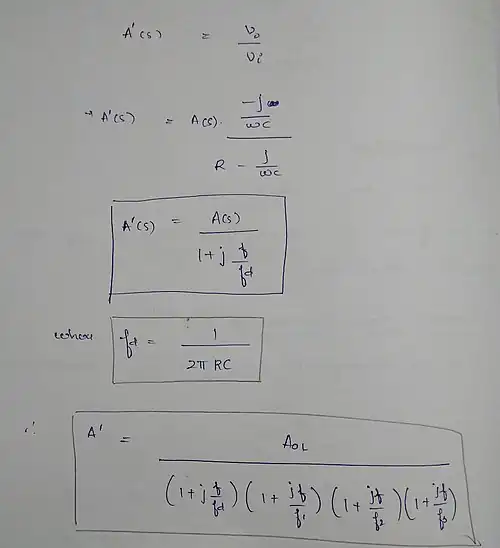 A'(s) = Vo / Vi
→ A'(s) = A(s) · (-j / ωC) / (R - j / ωC)
A'(s) = A(s) / (1 + j f / fd)
where fd = 1 / (2π RC)
∴ A' = AOL / ((1 + j f / fd) (1 + jf / f1) (1 + jf / f2) (1 + jf / f3))